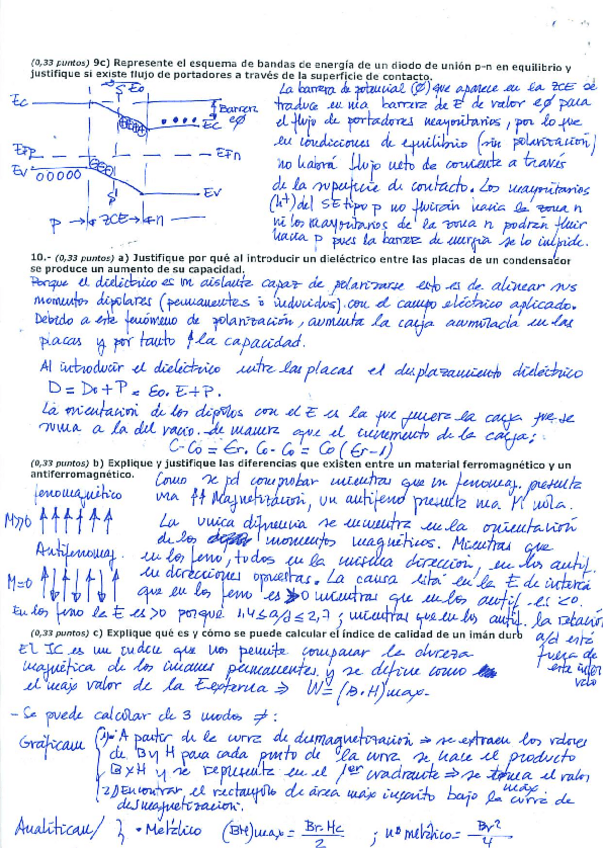 (0,33 puntos) 9c) Represente el esquema de bandas de energía de un diodo de unión p-n en equilibrio y
justifique si existe flujo de portadores a través de la superficie de contacto.
Ec
Eo
Barrera
eφ
Ec
EFp
EFn
Ev
Ev
p → ZCE ← n
La barrera de potencial (φ) que aparece en la ZCE se
traduce en una barrera de E de valor eφ para
el flujo de portadores mayoritarios, por lo que
en condiciones de equilibrio (sin polarización)
no habrá flujo neto de corriente a través
de la superficie de contacto. Los mayoritarios
(h+) del SE tipo p no fluirán hacia la zona n
ni los mayoritarios de la zona n podrán fluir
hacia p pues la barrera de energía se lo impide.
10.- (0,33 puntos) a) Justifique por qué al introducir un dieléctrico entre las placas de un condensador
se produce un aumento de su capacidad.
Porque el dieléctrico es un aislante capaz de polarizarse esto es de alinear sus
momentos dipolares (permanentes o inducidos) con el campo eléctrico aplicado.
Debido a este fenómeno de polarización, aumenta la carga acumulada en las
placas y por tanto ↑ la capacidad.
Al introducir el dieléctrico entre las placas el desplazamiento dieléctrico
D = Do + P = εo.E + P.
La orientación de los dipolos con el E es la que genera la carga que se
suma a la del vacío de manera que el incremento de la carga:
C-Co = εr.Co-Co = Co(εr-1)
(0,33 puntos) b) Explique y justifique las diferencias que existen entre un material ferromagnético y un
antiferromagnético.
Como se pd comprobar mientras que un ferromag. presenta
una ↑↑ Magnetización, un antiferro presenta una M nula.
ferromagnético
M>>0
Antiferromag.
M=0
La única diferencia se encuentra en la orientación
de los momentos magnéticos. Mientras que
en los ferro, todos en la misma dirección, en los antif.
en direcciones opuestas. La causa está en la E de interac
que en los ferro es >0 mientras que en los antif. es <0.
En los ferro la E es >0 porque 1,4≤a/d≤2,7; mientras que en los antif. la relación
a/d está
fuera de
este inter
valo
(0,33 puntos) c) Explique qué es y cómo se puede calcular el índice de calidad de un imán duro
El IC es un índice que nos permite comparar la dureza
magnética de los imanes permanentes y se define como
el max valor de la E externa ⇒ W = (B.H)max.
- Se puede calcular de 3 modos ≠:
Gráficam
1) A partir de la curva de desmagnetización ⇒ se extraen los valores
de B y H para cada punto de la curva se hace el producto
B×H y se representa en el 1er cuadrante ⇒ se toma el valor
max
2) Encontrar el rectángulo de área máx inscrito bajo la curva de
desmagnetización.
Analíticam/ } • Metálico (BH)max = Br.Hc/2 ; no metálico = Br²/4